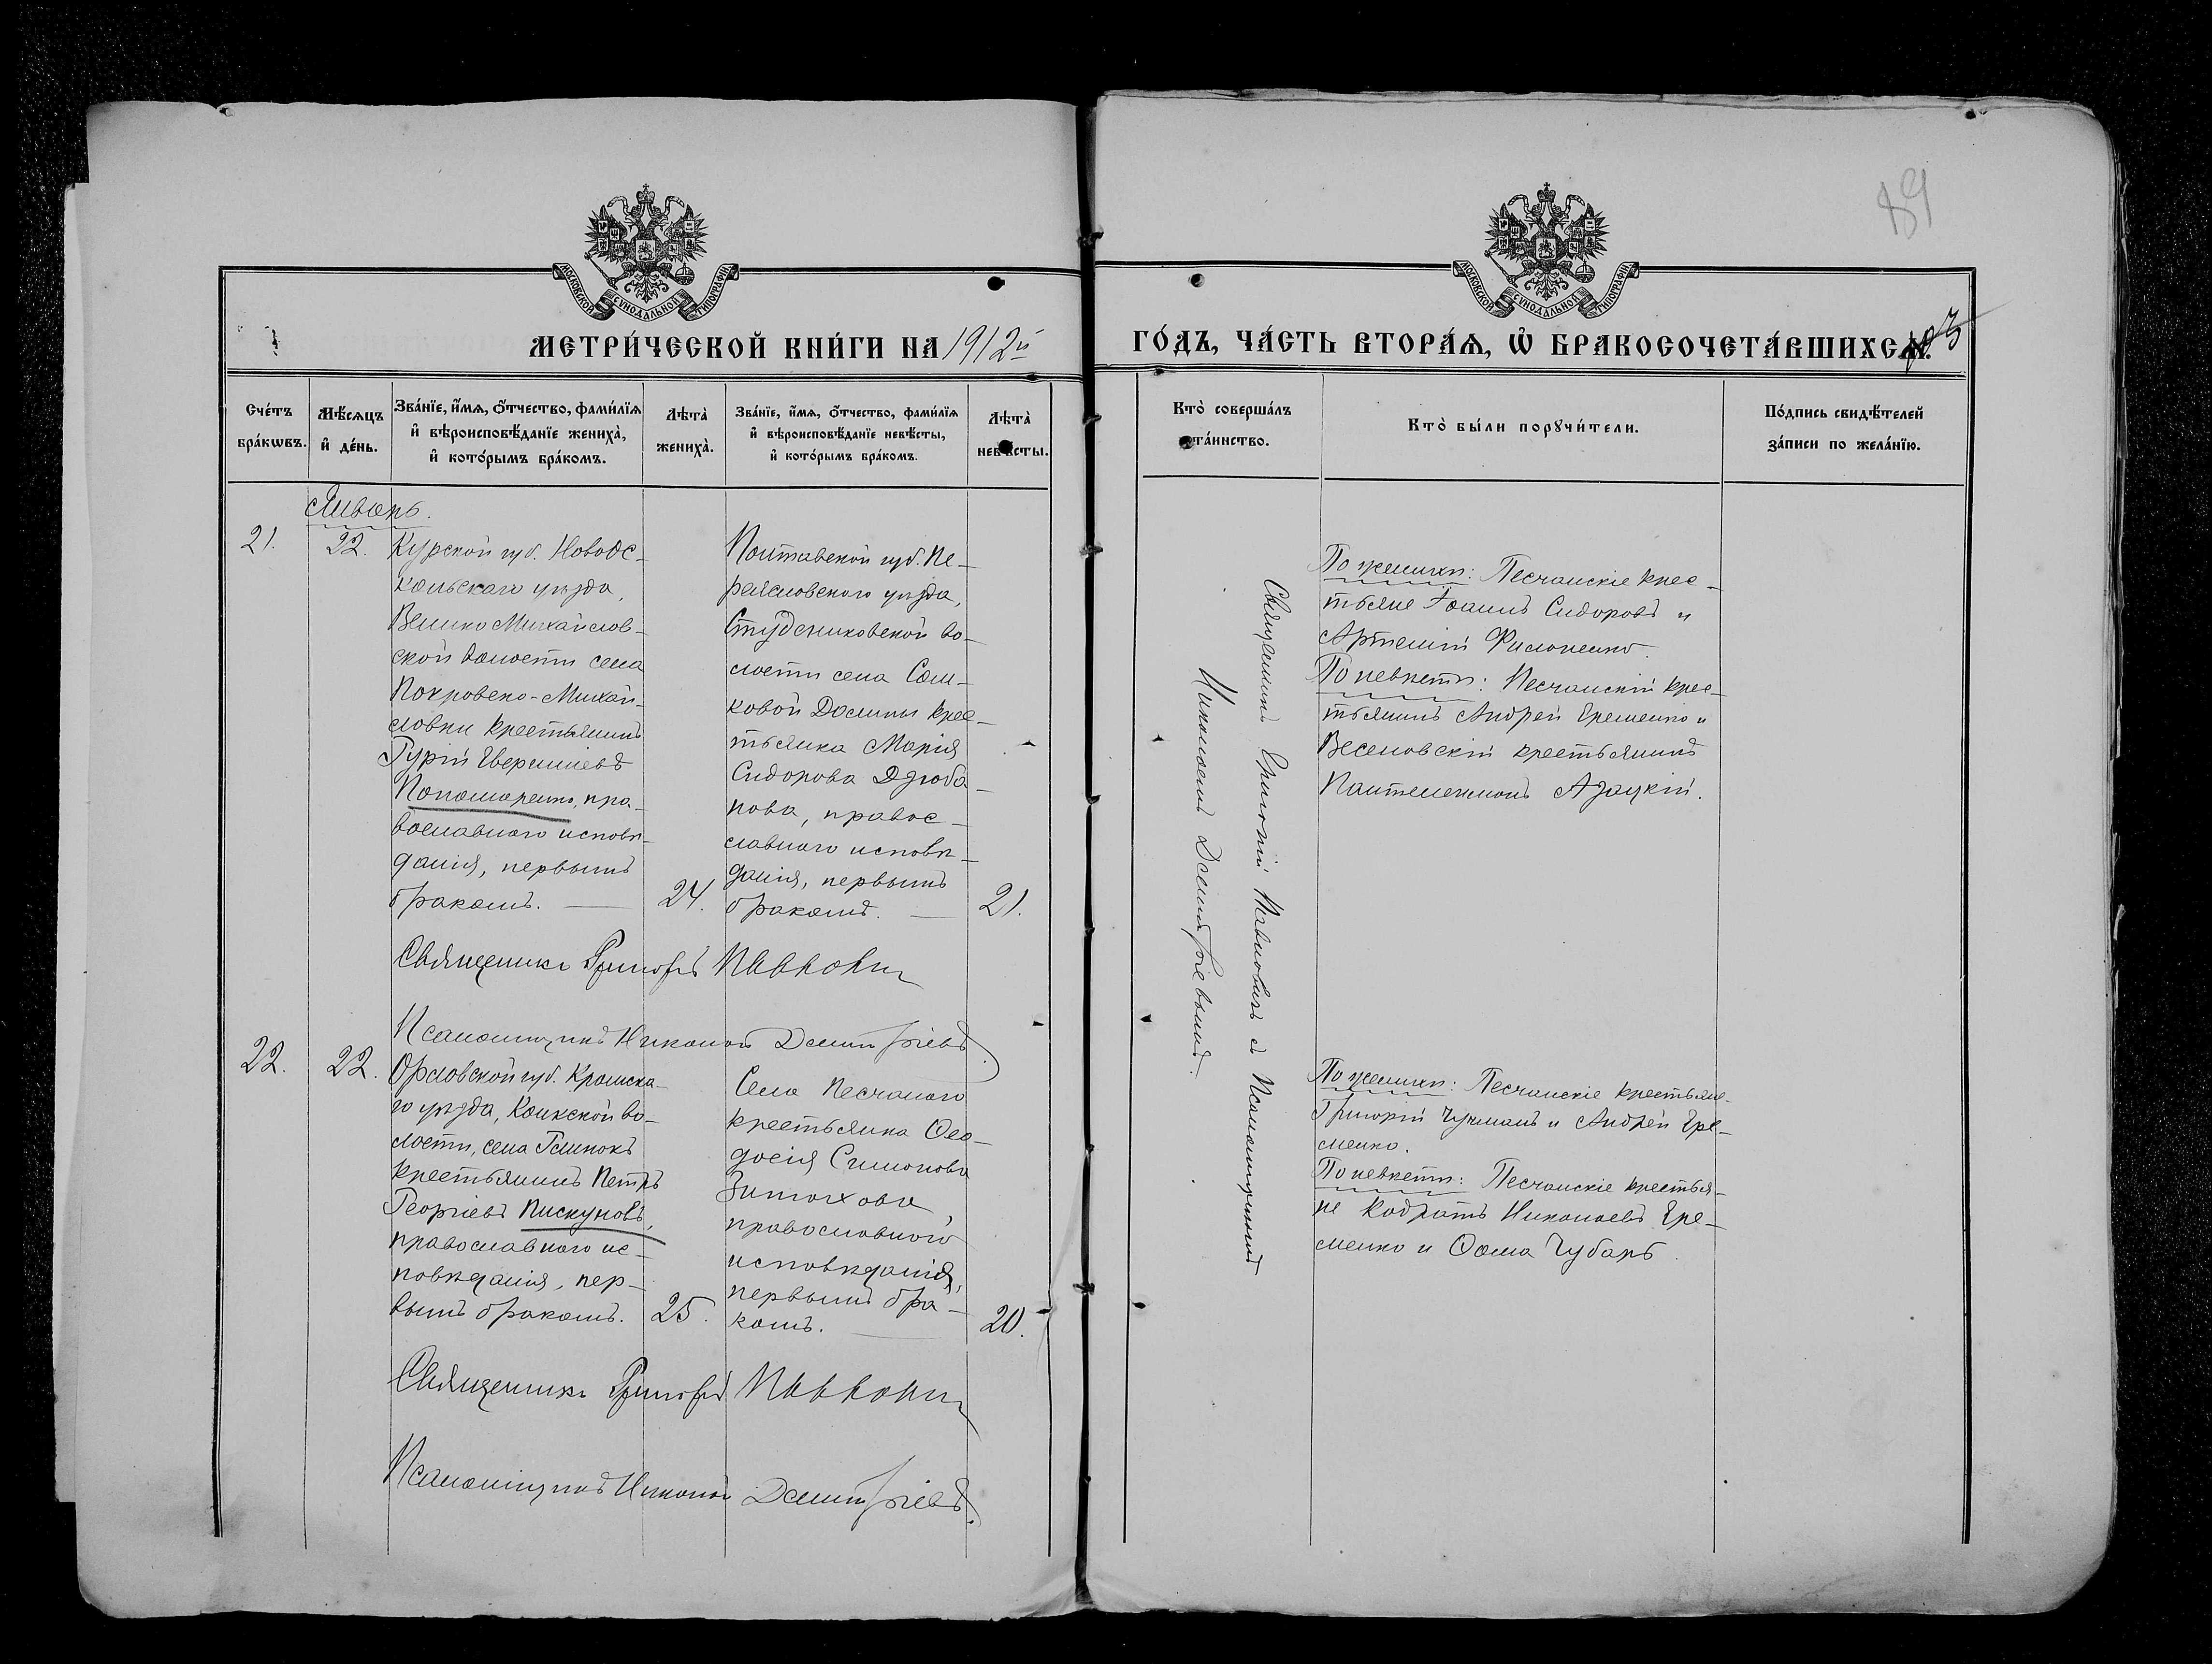 89
МОСКОВСКОЙ СѴНОДАЛЬНОЙ ТИПОГРАФІИ
МОСКОВСКОЙ СѴНОДАЛЬНОЙ ТИПОГРАФІИ
МЕТРИ́ЧЕСКОЙ КНИ́ГИ НА 1912й
ГО́ДЪ, ЧА́СТЬ ВТОРА́Ѧ, Ѽ БРАКОСОЧЕТА́ВШИХСѦ.
Сче́тъ бра́кѡвъ.
Мѣ́сѧцъ и҆ де́нь.
Зва́нїе, и҆́мѧ, ѻ҆́тчество, фами́лїѧ и҆ вѣроисповѣ́данїе жениха̀, и҆ кото́рымъ бра́комъ.
Лѣта̀ жениха̀.
Зва́нїе, и҆́мѧ, ѻ҆́тчество, фами́лїѧ и҆ вѣроисповѣ́данїе невѣ́сты, и҆ кото́рымъ бра́комъ.
Лѣта̀ невѣ́сты.
Кто̀ соверша́лъ та́инство.
Кто̀ бы́ли порꙋчи́тели.
По́дпись свидѣ́телей за́писи по жела́нїю.
21.
22.
Курской губ. Новоос-
кольскаго уѣзда,
Велико Михайлов-
ской волости села
Покровско-Михай-
ловки крестьянинъ
Гурій
Пономаренко, пра-
вославнаго исповѣ-
данія, первымъ
бракомъ.
24.
Полтавской губ. Пе-
реяславскаго уѣзда,
Студениковской во-
лости села Сом-
ковой Долины крес-
тьянка Марія
Сидорова Дзюба-
нова, правос-
лавнаго исповѣ-
данія, первымъ
бракомъ.
21.
По женихѣ: Песчанскіе крес-
тьяне Іоаннъ Сидоровъ и
Артемій Филоненко.
По невѣстѣ: Песчанскій крес-
тьянинъ Андрей Еременко и
Веселовскій крестьянинъ
Пантелеимонъ Азацкій.
Священникъ Григорій Павловичъ съ Псаломщикомъ
Николаемъ Димитріевымъ.
Священникъ Григорій Павловичъ
Псаломщикъ Николай Димитріевъ.
22.
22.
Орловской губ. Кромска-
го уѣзда, волости, села
крестьянинъ Петръ
Георгіевъ Пискуновъ,
православнаго ис-
повѣданія, пер-
вымъ бракомъ.
25.
Села Песчанаго
крестьянка Ѳео-
досія Симонова
православнаго
исповѣданія,
первымъ бра-
комъ.
20.
По женихѣ: Песчанскіе крестьяне
Григорій и Андрей Ере-
менко.
По невѣстѣ: Песчанскіе крестья-
не Кодратъ Николаевъ Ере-
менко и Ѳома Чубарь.
Священникъ Григорій Павловичъ
Псаломщикъ Николай Димитріевъ.